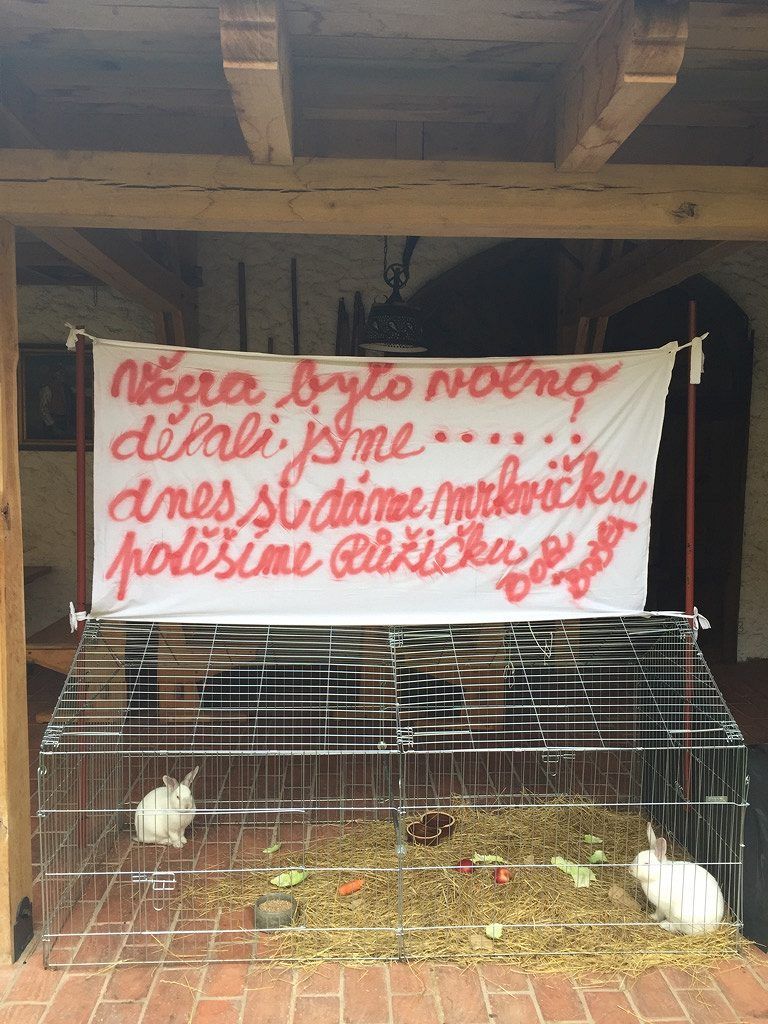 Včera bylo volno
dělali jsme ......!
dnes si dáme mrkvičku
potěšíme Růžičku
Bob